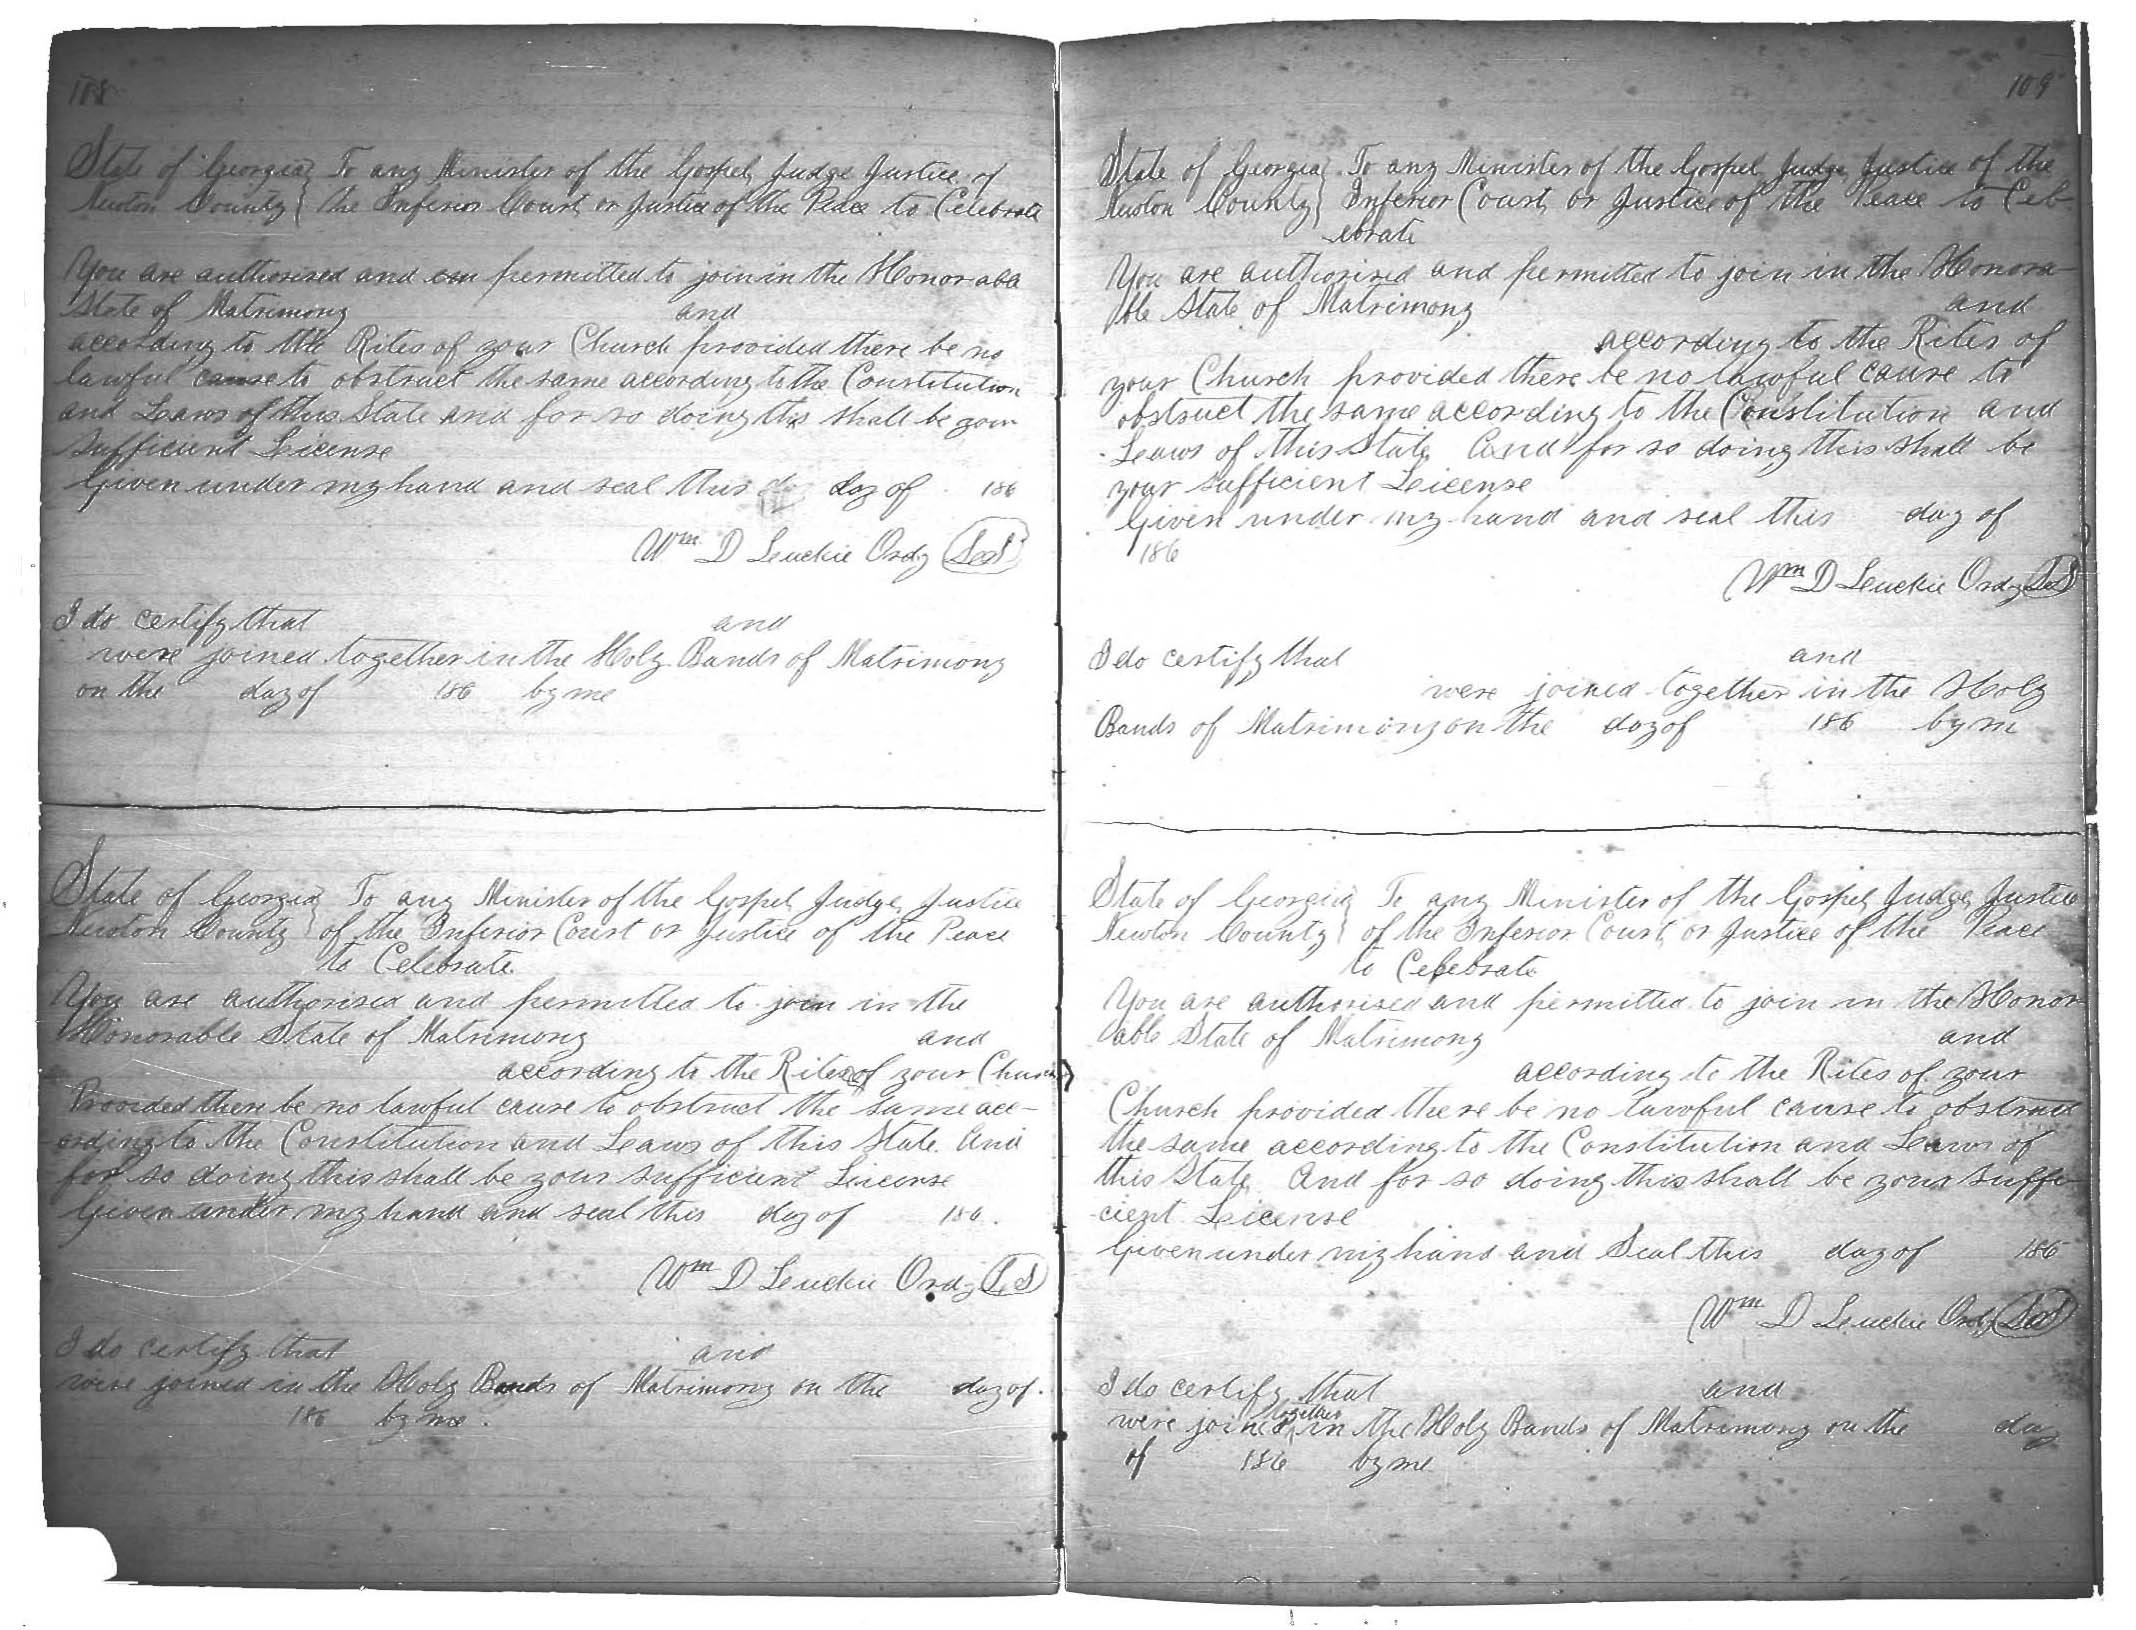 108
State of Georgia } To any Minister of the Gospel, Judge Justice of
Newton County } the Inferior Court or Justice of the Peace to Celebrate
You are authorised and permitted to join in the Honorable
State of Matrimony and
according to the Rites of your Church provided there be no
lawful cause to obstruct the same according to the Constitution
and Laws of this State and for so doing this shall be your
sufficient License
Given under my hand and seal this day of 186
Wm D Luckie Ordy Seal
I do certify that and
were joined together in the Holy Bands of Matrimony
on the day of 186 by me
State of Georgia } To any Minister of the Gospel, Judge, Justice
Newton County } of the Inferior Court or Justice of the Peace
to Celebrate
You are authorised and permitted to join in the
Honorable State of Matrimony and
according to the Rites of your Church
Provided there be no lawful cause to obstruct the same acc-
ording to the Constitution and Laws of this State. And
for so doing this shall be your sufficient License
Given under my hand and seal this day of 186.
Wm D Luckie Ordy L S
I do certify that and
were joined in the Holy Bands of Matrimony on the day of.
186 by me.
109
State of Georgia } To any Minister of the Gospel, Judge, Justice of the
Newton County } Inferior Court, or Justice of the Peace to Cel-
ebrate
You are authorised and permitted to join in the Honora-
ble State of Matrimony and
according to the Rites of
your Church provided there be no lawful cause to
obstruct the same according to the Constitution and
Laws of this State. And for so doing this shall be
your sufficient License
Given under my hand and seal this day of
186
Wm D Luckie Ordy LS
I do certify that and
were joined together in the Holy
Bands of Matrimony on the day of 186 by m
State of Georgia } To any Minister of the Gospel, Judge, Justice
Newton County } of the Inferior Court, or Justice of the Peace
to Celebrate
You are authorised and permitted to join in the Honor
able State of Matrimony and
according to the Rites of your
Church provided there be no lawful cause to obstruct
the same according to the Constitution and Laws of
this State. And for so doing this shall be your suffi-
cient License
Given under my hand and Seal this day of 186
Wm D Luckie Ordy Seal
I do certify that and
were joined together in the Holy Bands of Matrimony on the day
of 186 by me